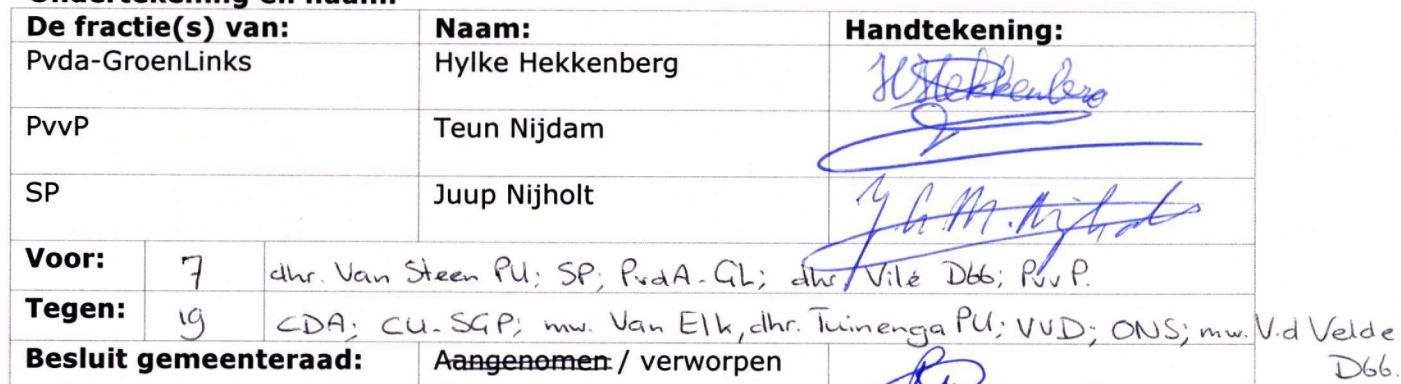 De fractie(s) van: Naam: Handtekening:
Pvda-GroenLinks Hylke Hekkenberg HHekkenberg
PvvP Teun Nijdam
SP Juup Nijholt
Voor: 7 dhr. Van Steen PU; SP; PvdA-GL; dhr Vilé D66; PvvP.
Tegen: 19 CDA; CU-SGP; mw. Van Elk, dhr. Tuinenga PU; VVD; ONS; mw. V.d Velde
D66.
Besluit gemeenteraad: Aangenomen / verworpen